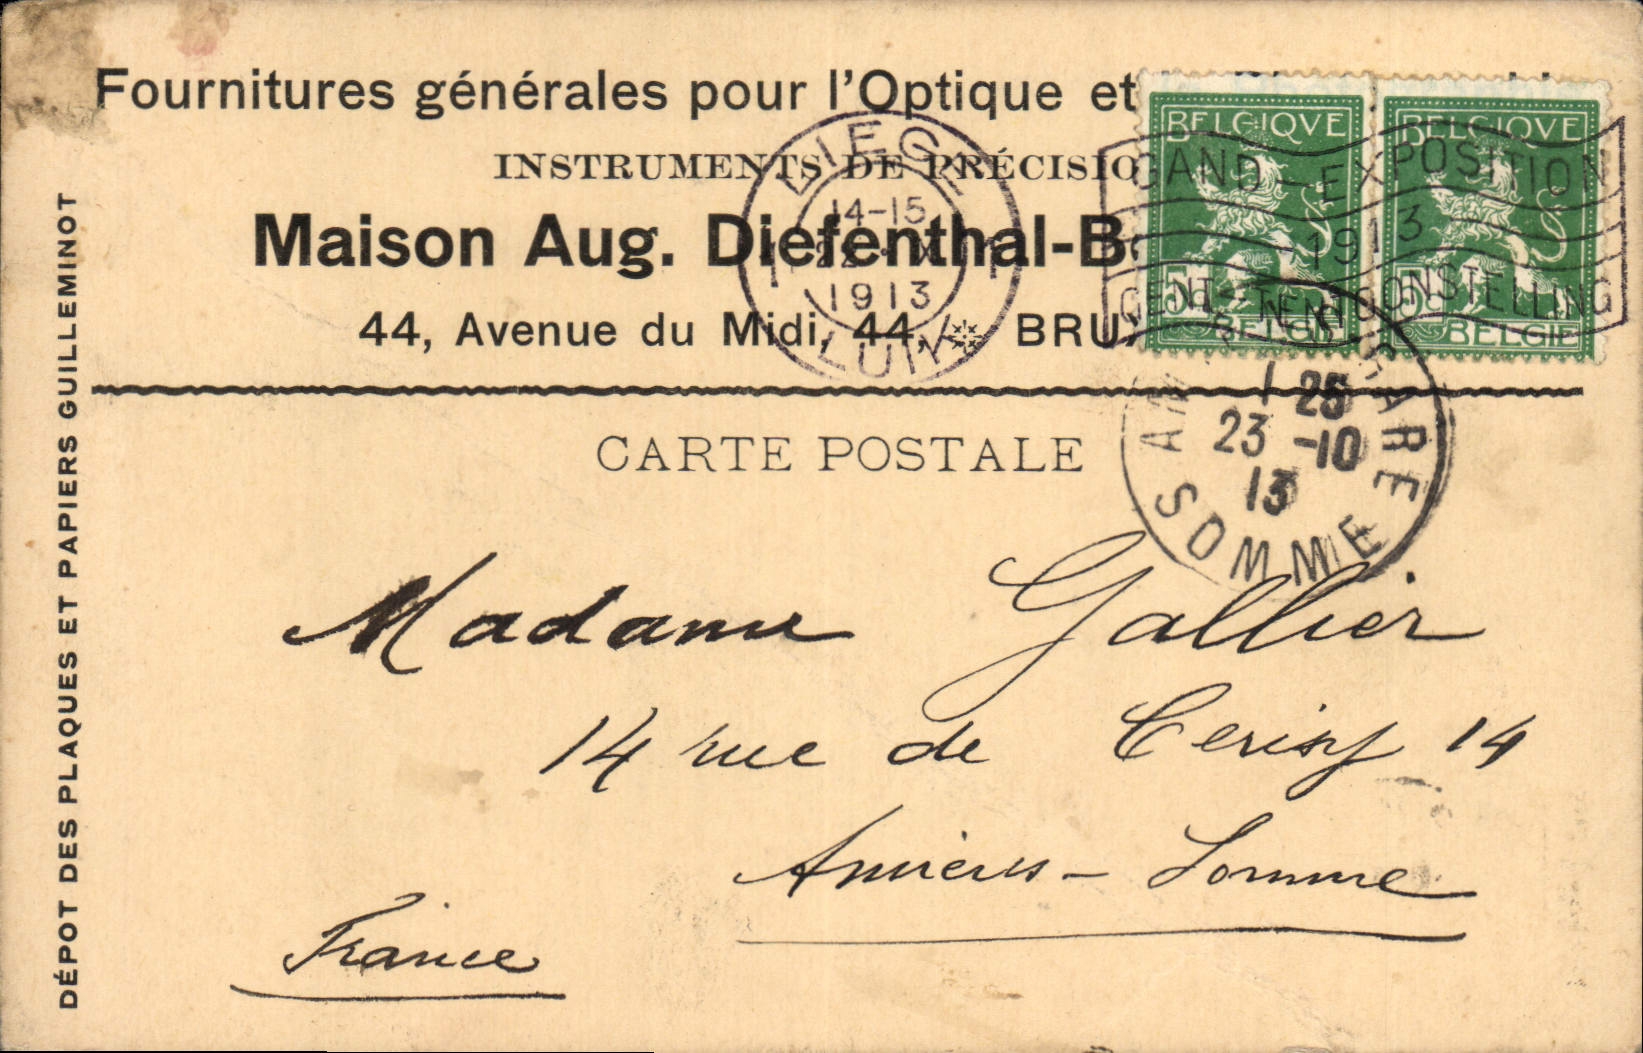 Fournitures générales pour l'Optique et
INSTRUMENTS DE PRÉCISIO
Maison Aug. Diefenthal-B
44, Avenue du Midi, 44, BRU
DÉPOT DES PLAQUES ET PAPIERS GUILLEMINOT
BELGIQVE
5c
BELGIË
BELGIQVE
5c
BELGIË
LIEGE
14-15
22 X
1913
LUIK
GAND-EXPOSITION
1913
GENT-TENTOONSTELLING
AMIENS GARE
1 25
23 -10
13
SOMME
CARTE POSTALE
Madame Gallier
14 rue de Cerisy 14
Amiens - Somme
France